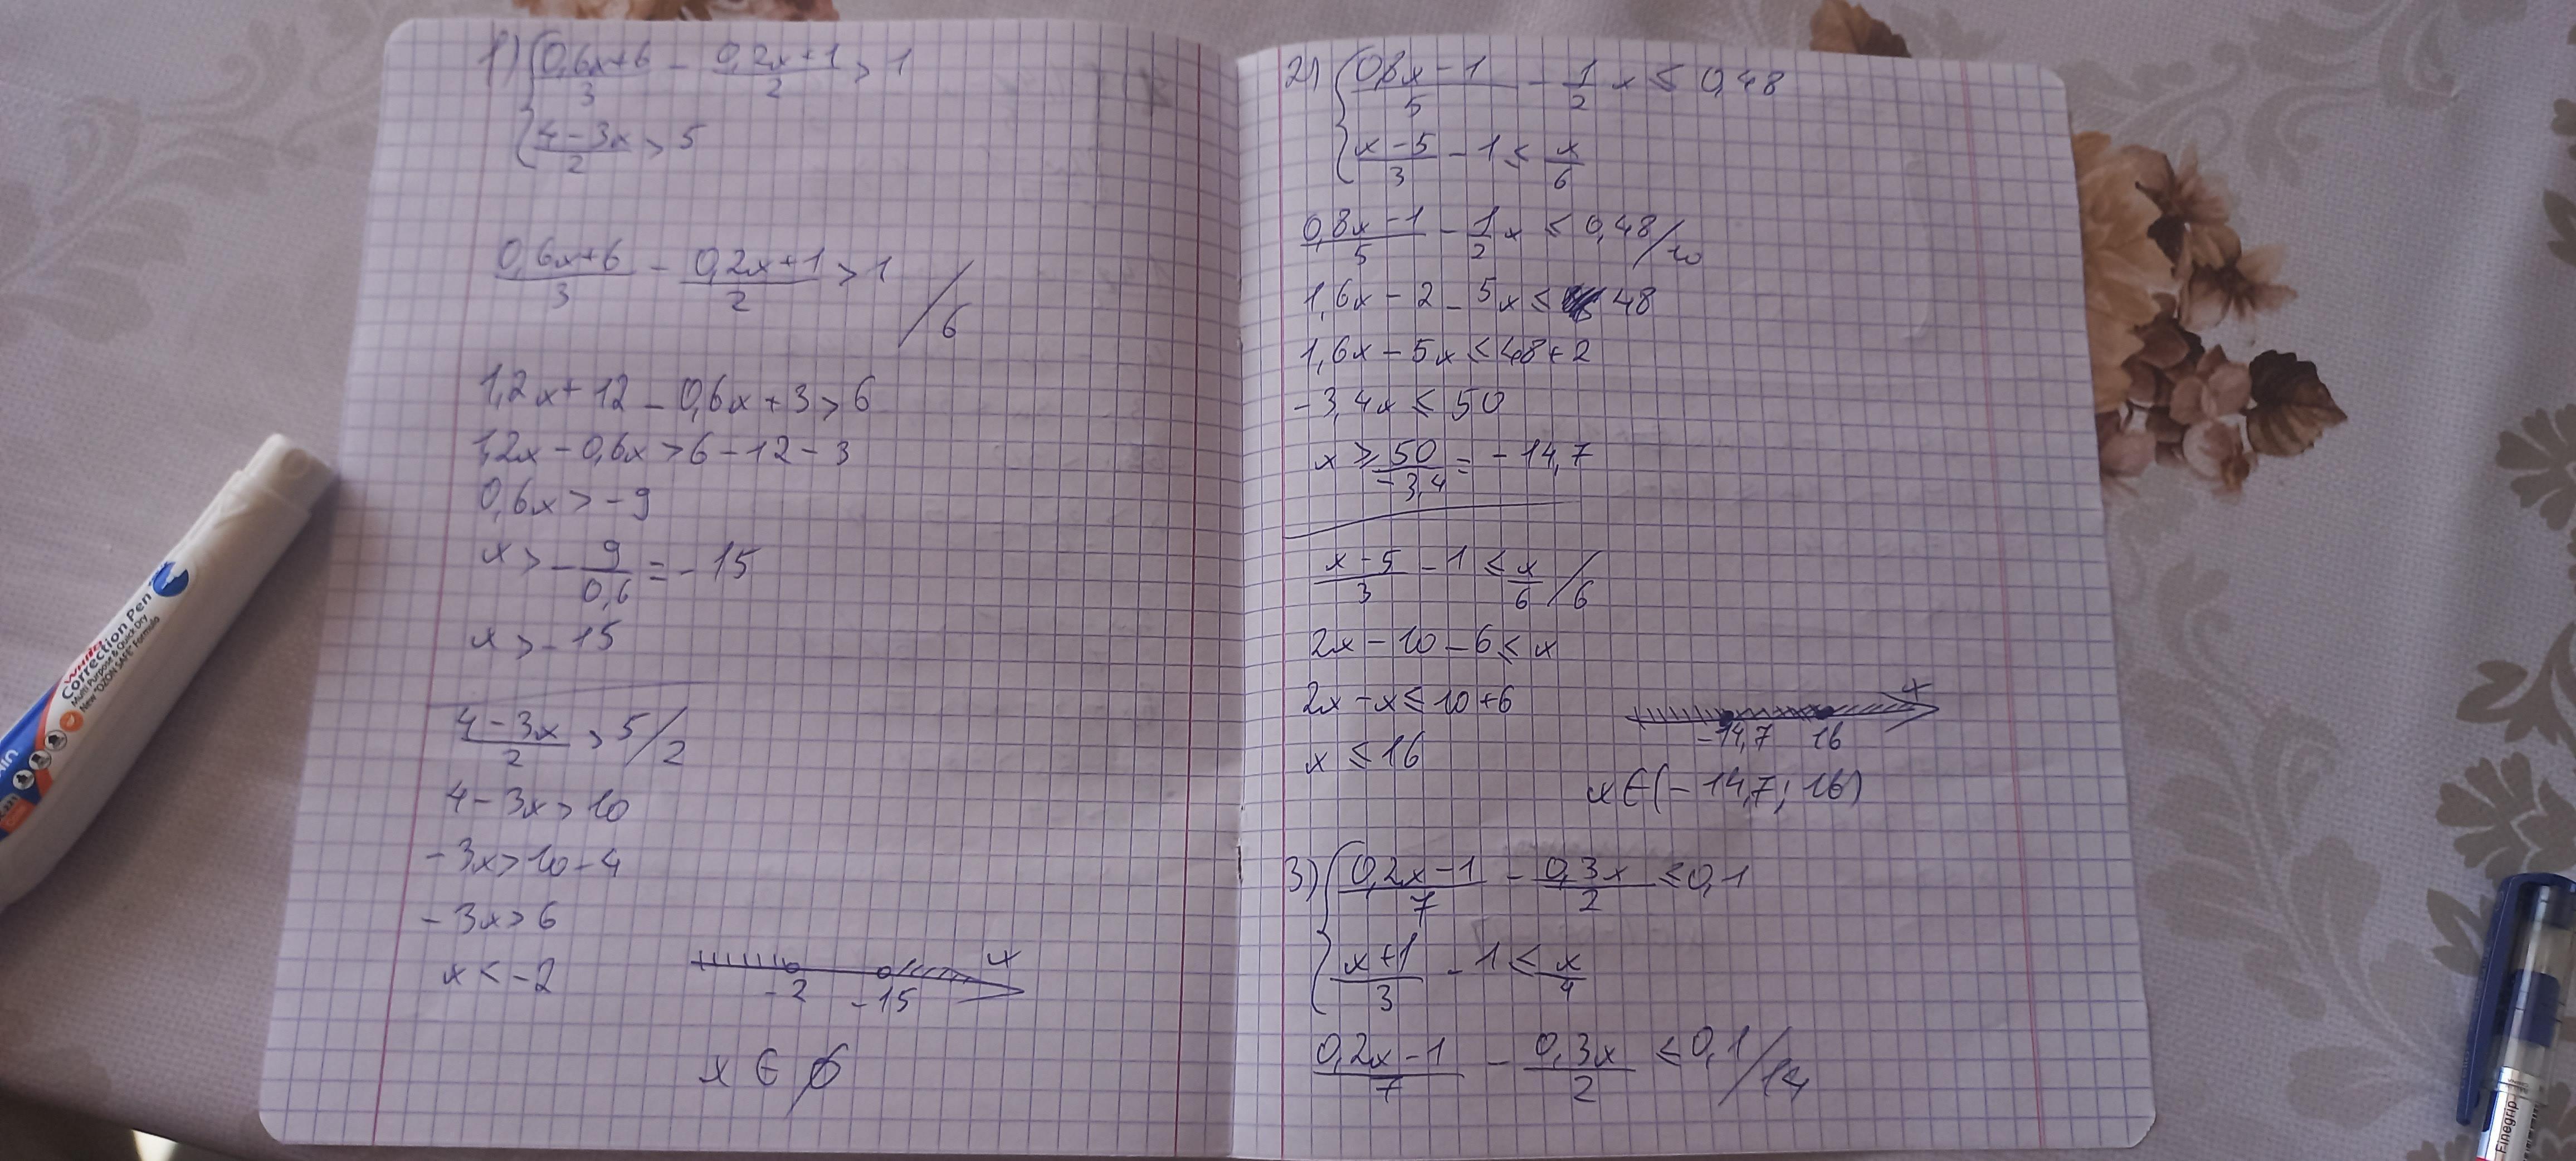 1) { (0,6x+6)/3 - (0,2x+1)/2 > 1
(4-3x)/2 > 5
(0,6x+6)/3 - (0,2x+1)/2 > 1 /6
1,2x+12-0,6x+3>6
1,2x-0,6x>6-12-3
0,6x>-9
x>-9/0,6=-15
x>-15
(4-3x)/2 > 5 /2
4-3x>10
-3x>10-4
-3x>6
x<-2
x
-2 -15
x ∈ ∅
2) { (0,8x-1)/5 - 1/2 x ≤ 0,48
(x-5)/3 - 1 ≤ x/6
(0,8x-1)/5 - 1/2 x ≤ 0,48 /10
1,6x-2-5x≤48
1,6x-5x≤48+2
-3,4x≤50
x≥50/-3,4=-14,7
(x-5)/3 - 1 ≤ x/6 /6
2x-10-6≤x
2x-x≤10+6
x≤16
x
-14,7 16
x∈(-14,7; 16)
3) { (0,2x-1)/7 - 0,3x/2 ≤ 0,1
(x+1)/3 - 1 ≤ x/4
(0,2x-1)/7 - 0,3x/2 ≤ 0,1 /14
white
Correction Pen
Multi Purpose & Quick Dry
New "OZON SAFE" Formula
Finegrip